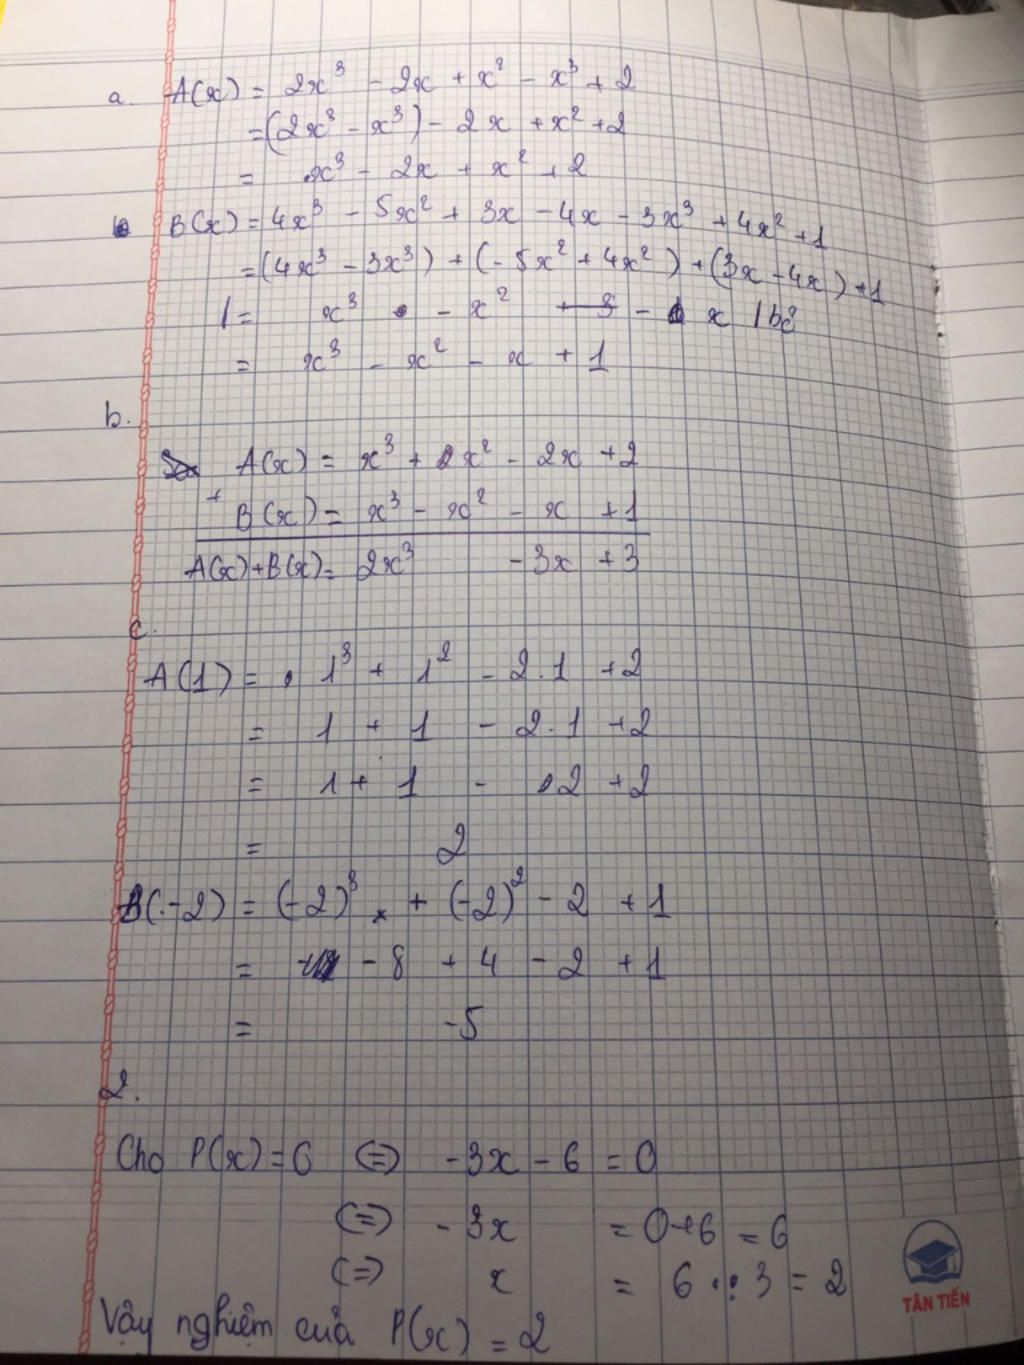 a. A(x) = 2x³ - 2x + x² - x³ + 2
= (2x³ - x³) - 2x + x² + 2
= x³ - 2x + x² + 2
B(x) = 4x³ - 5x² + 3x - 4x - 3x³ + 4x² + 1
= (4x³ - 3x³) + (-5x² + 4x²) + (3x - 4x) + 1
= x³ - x² - x
= x³ - x² - x + 1
b.
A(x) = x³ + x² - 2x + 2
+
B(x) = x³ - x² - x + 1
A(x)+B(x) = 2x³ - 3x + 3
c.
A(1) = 1³ + 1² - 2.1 + 2
= 1 + 1 - 2.1 + 2
= 1 + 1 - 2 + 2
= 2
B(-2) = (-2)³ + (-2)² - 2 + 1
= - 8 + 4 - 2 + 1
= -5
2.
Cho P(x) = 6 <=> -3x - 6 = 0
<=> - 3x = 0+6 = 6
<=> x = 6 : 3 = 2
Vậy nghiệm của P(x) = 2
TÂN TIẾN